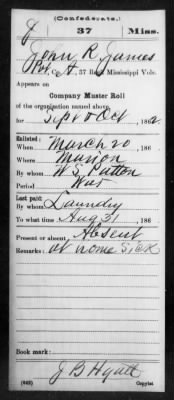 (Confederate.)
J 37 Miss.
John R. James
Pvt, Co. A, 37 Reg't Mississippi Vols.
Appears on
Company Muster Roll
of the organization named above,
for Sept & Oct, 1862
Enlisted:
When March 20, 186
Where Marion
By whom W. S. Patton
Period War
Last paid:
By whom Laundry
To what time Aug 31, 186
Present or absent, Absent
Remarks: at home Sick
Book mark:
J B Hyatt
(642) Copyist